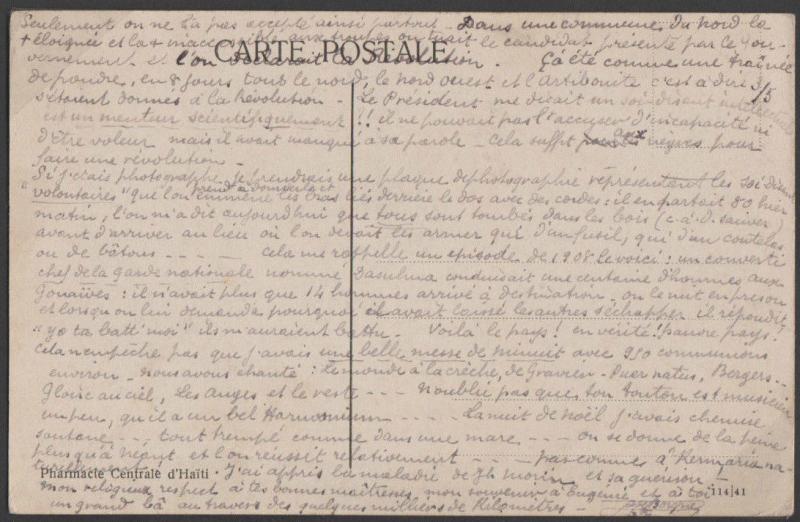 Seulement on ne l'a pas accepté ainsi partout - Dans une commune du Nord la
+ éloignée et la + inaccessible aux troupes on tuait le candidat présenté par le Gou-
CARTE POSTALE
vernement et l'on déclarait la révolution. Ça été comme une traînée
de poudre, en 8 jours tout le nord, le nord ouest et l'Artibonite c'est à dire 3/5
s'étaient donnés à la Révolution - Le Président me disait un soi disant intellectuel
est un menteur scientifiquement !! il ne pouvait pas l'accuser d'incapacité ni
d'être voleur mais il avait manqué à sa parole - Cela suffit aux nègres pour
faire une révolution -
Si j'étais photographe, je prendrais une plaque de photographie représentant les soi disant
"volontaires" que l'on prend à domicile et emmène les bras liés derrière le dos avec des cordes : il en partait 80 hier
matin, l'on m'a dit aujourd'hui que tous sont tombés dans les bois (c.à.d. sauver
avant d'arriver au lieu où l'on devait les armer qui d'un fusil, qui d'un coutelas
ou de bâtons - - - - - Cela me rappelle un épisode de 1908 le voici : un converti
chef de la garde nationale nommé conduisait une centaine d'hommes aux
Gonaïves : il n'avait plus que 14 hommes arrivé à destination - on le mit en prison
et lorsqu'on lui demanda pourquoi il avait laissé les autres s'échapper il répondit
"yo ta batt' moi" ils m'auraient battu - Voilà le pays ! en vérité ! pauvre pays !
Cela n'empêche pas que j'avais une belle messe de minuit avec 950 communions
environ - nous avons chanté : Le monde à la crèche, de Gravier - Puer natus, Bergers..
Gloire au ciel, Les Anges et le reste - - - N'oublie pas que ton tonton est musicien
un peu, qu'il a un bel Harmonium - - - - La nuit de Noël j'avais chemise
soutane - - -, tout trempé comme dans une mare - - - on se donne de la peine
plus qu'à et l'on réussit relativement - - - - - pas comme à Kermaria na-
turellement
Pharmacie Centrale d'Haïti · J'ai appris la maladie de Jh Morin et sa guérison -
mon religieux respect à tes bonnes maîtresses, mon souvenir à Eugénie et à toi
114|41
un grand bâ au travers des quelques milliers de Kilomètres -